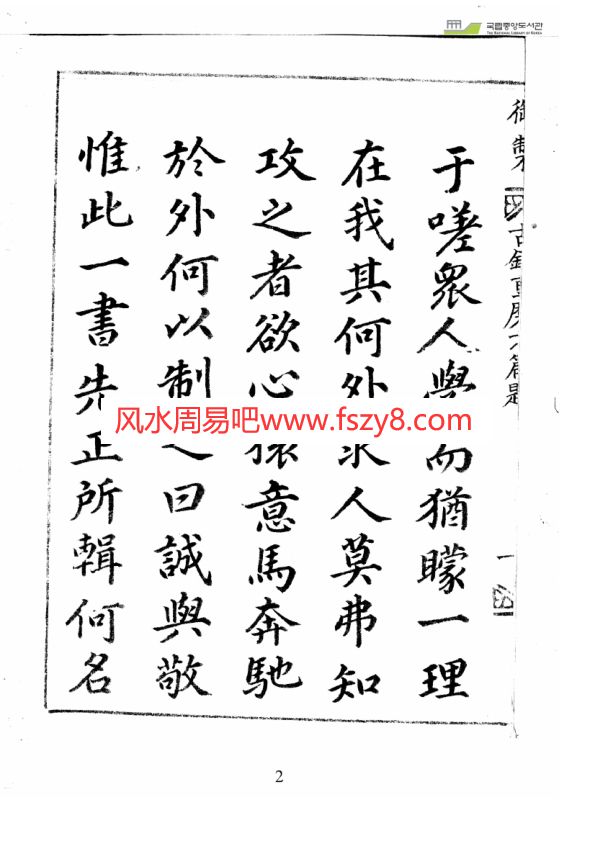 국립중앙도서관
THE NATIONAL LIBRARY OF KOREA
御製
古鏡重磨方篇題
一
于嗟衆人學而猶矇一理
在我其何外求人莫弗知
攻之者欲心猿意馬奔馳
於外何以制之曰誠與敬
惟此一書先正所輯何名
风水周易吧www.fszy8.com
2